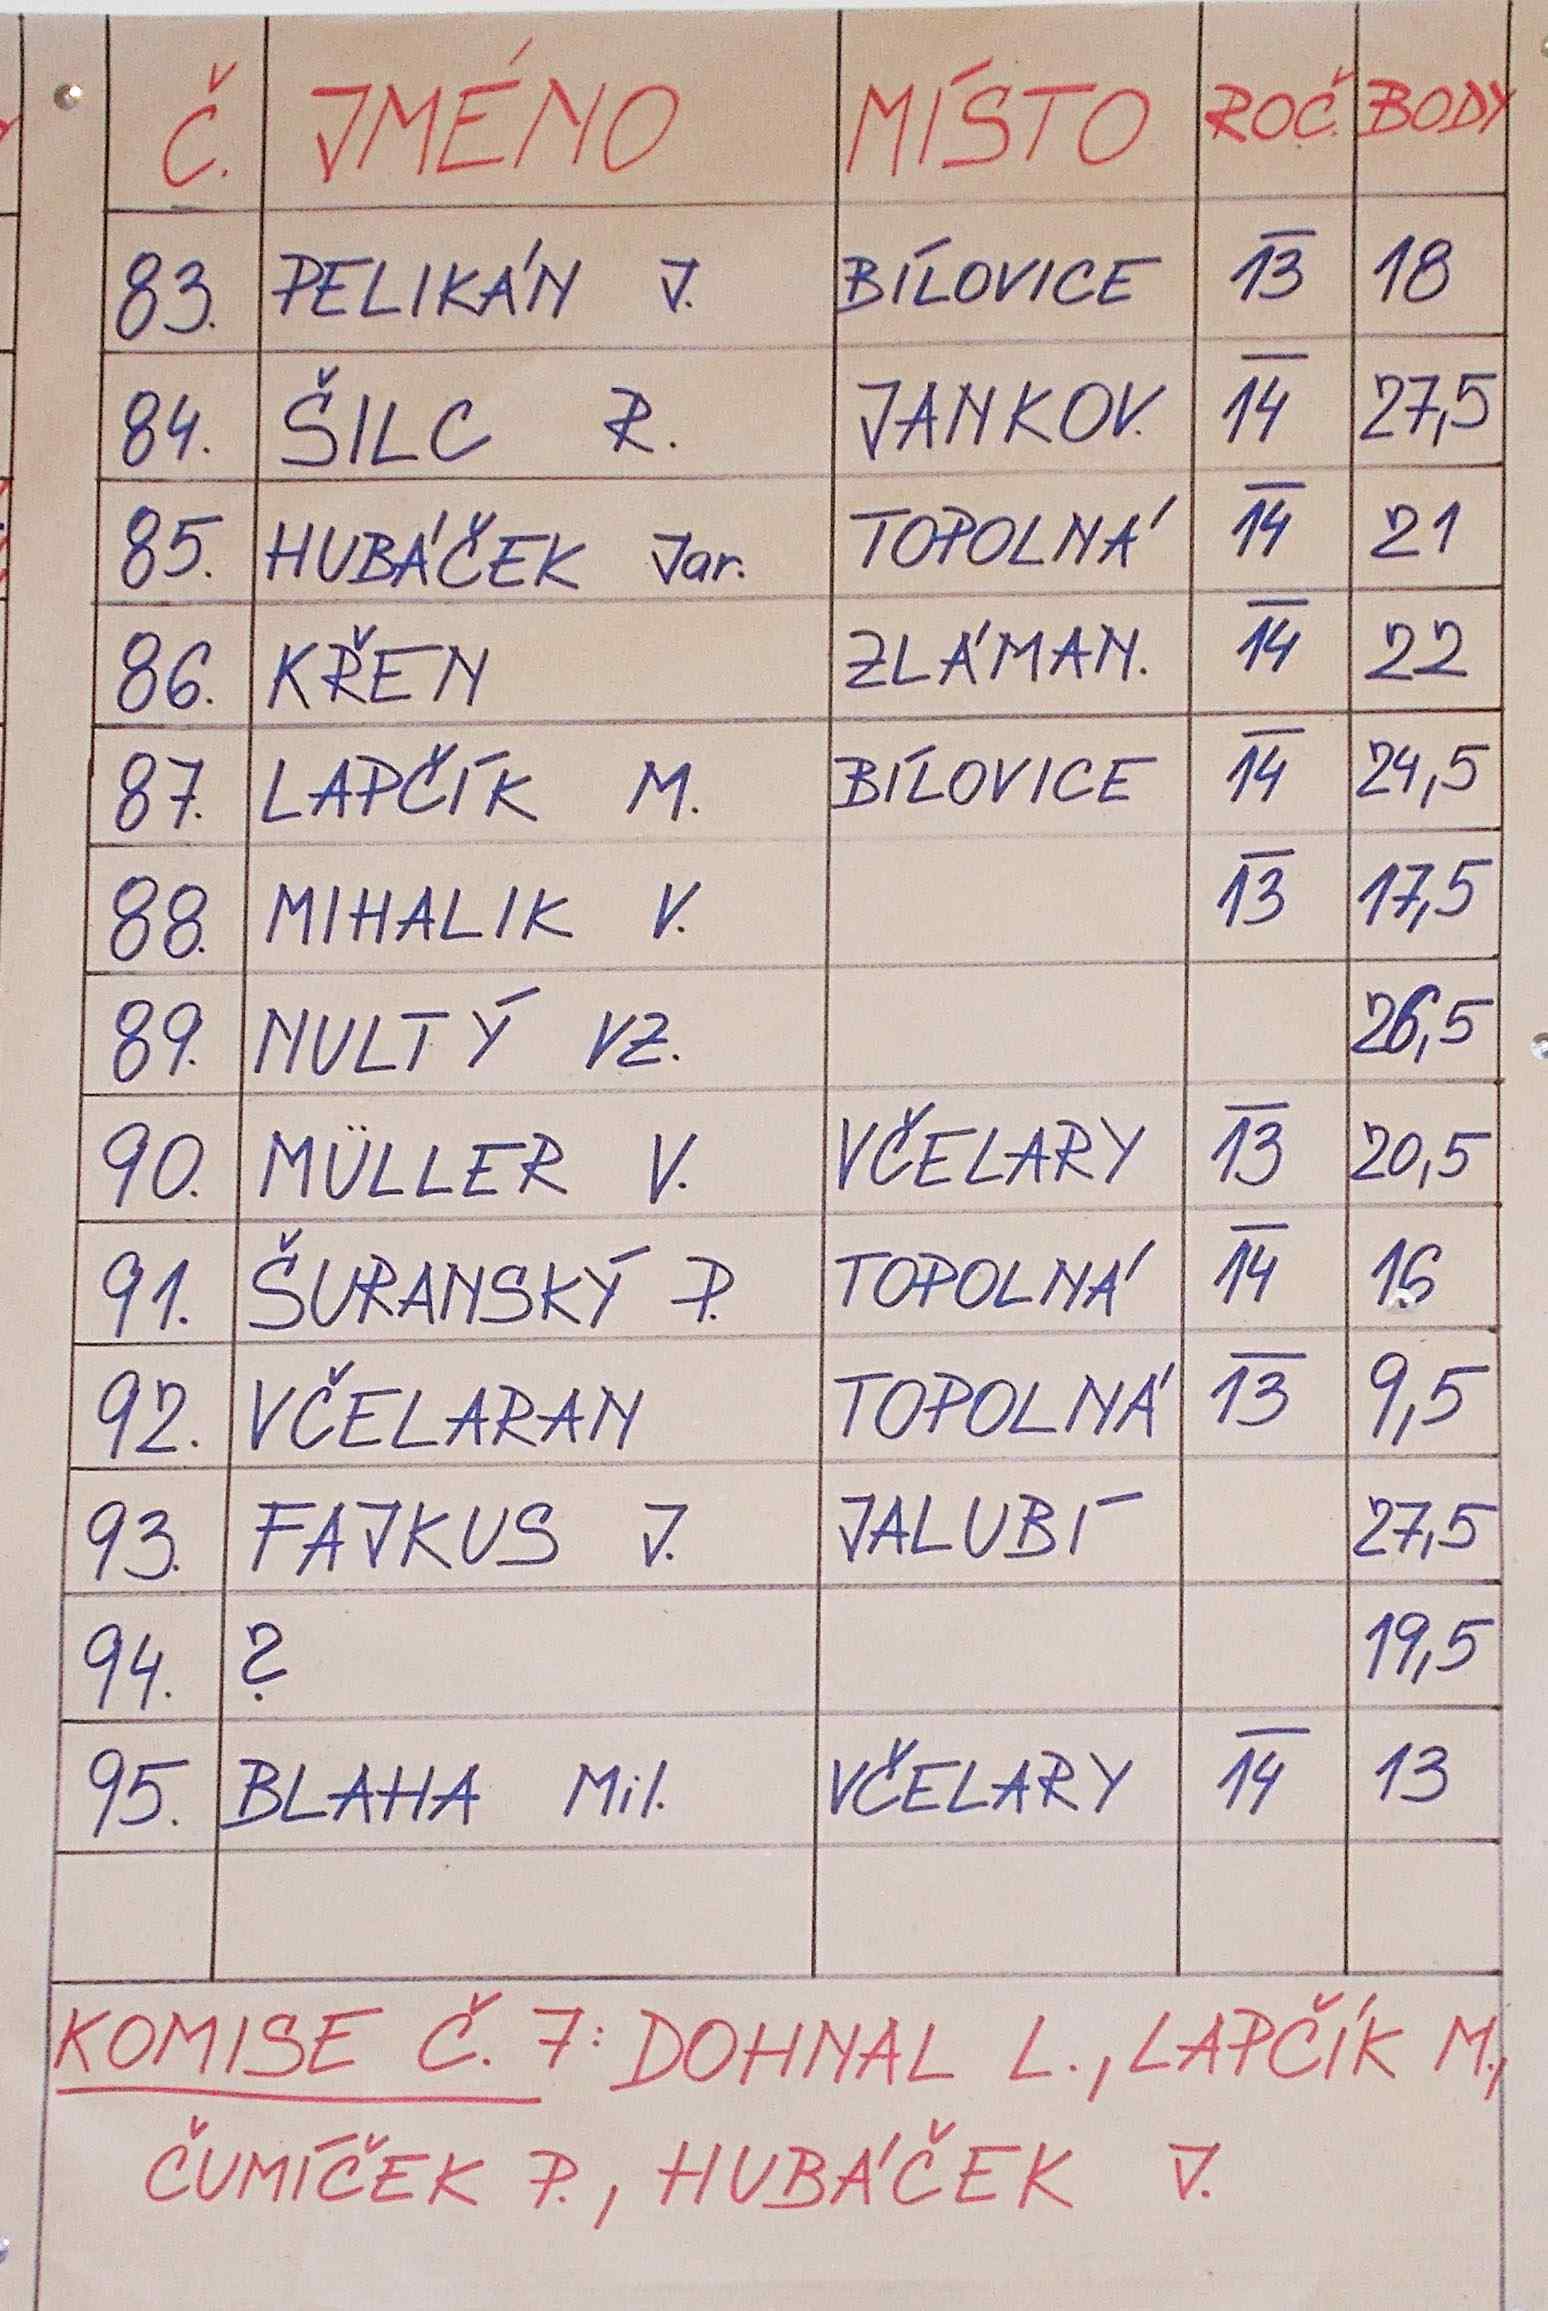 Č. JMÉNO MÍSTO ROČ. BODY
83. PELIKÁN J. BÍLOVICE 13 18
84. ŠILC R. JANKOV. 14 27,5
85. HUBÁČEK Jar. TOPOLNÁ 14 21
86. KŘEN ZLÁMAN. 14 22
87. LAPČÍK M. BÍLOVICE 14 24,5
88. MIHALIK V. 13 17,5
89. NULTÝ VZ. 26,5
90. MÜLLER V. VČELARY 13 20,5
91. ŠURANSKÝ P. TOPOLNÁ 14 16
92. VČELARAN TOPOLNÁ 13 9,5
93. FAJKUS J. JALUBÍ 27,5
94. ? 19,5
95. BLAHA Mil. VČELARY 14 13
KOMISE Č. 7: DOHNAL L., LAPČÍK M.,
ČUMÍČEK P., HUBÁČEK J.